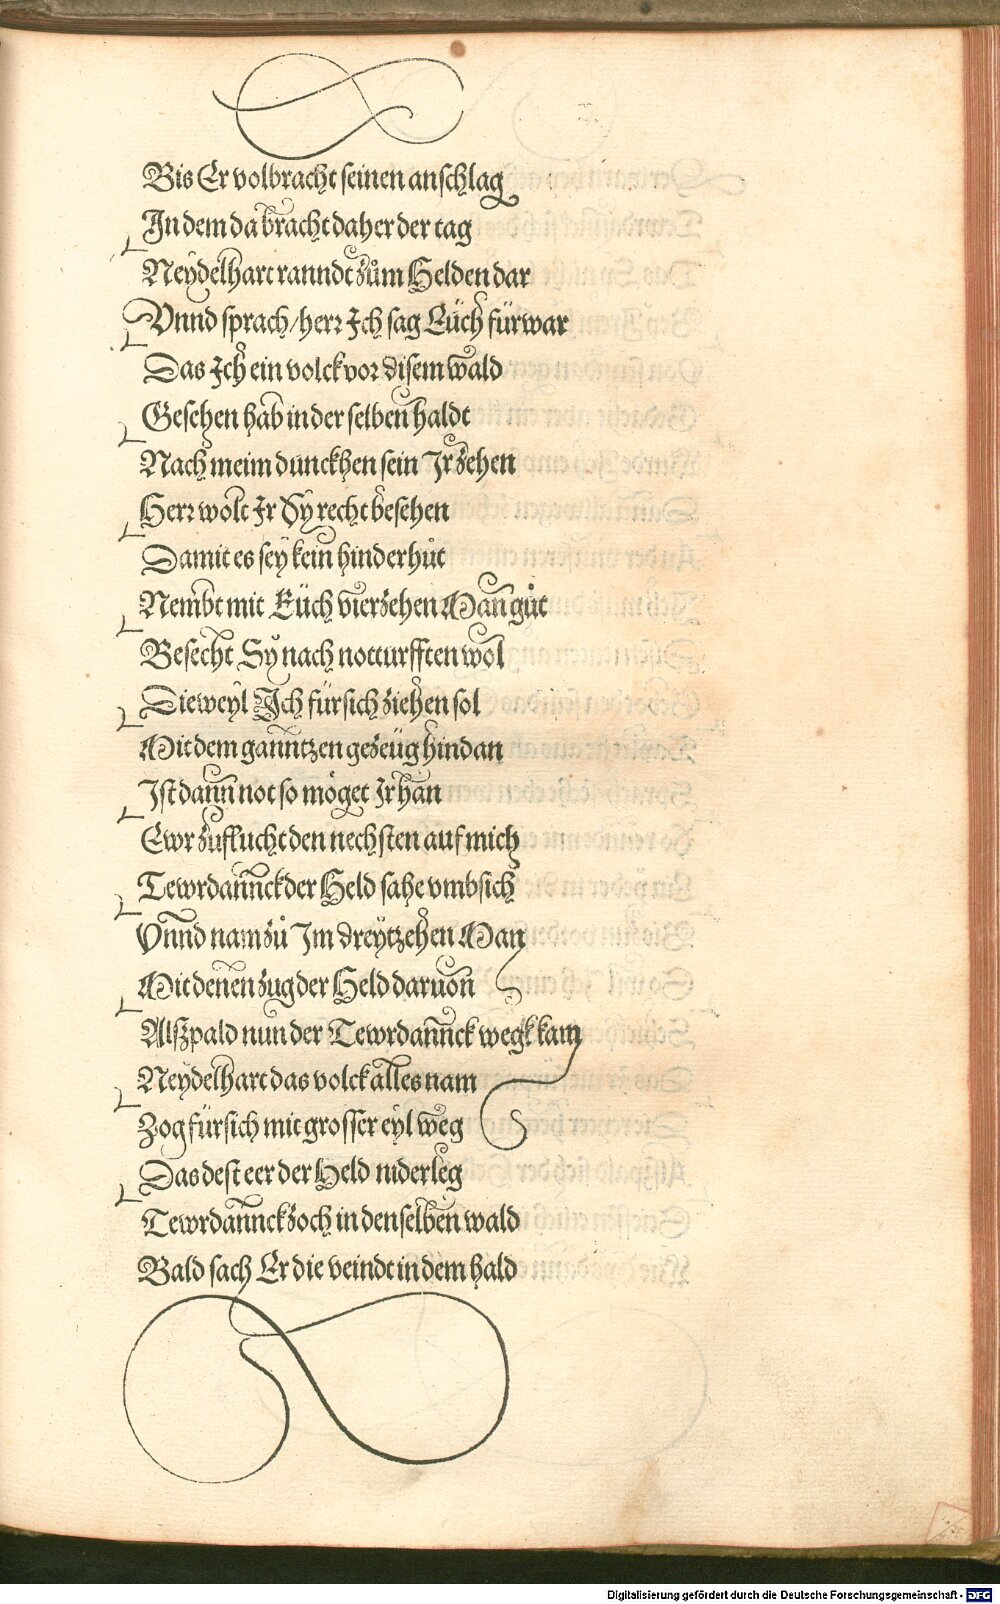 Bis Er volbracht seinen anschlag
In dem da bracht daher der tag
Neydelhart ranndt zům Helden dar
Vnnd sprach / herr Ich sag Eüch fürwar
Das Ich ein volck vor disem wald
Gesehen hab in der selben haldt
Nach meim dunckhen sein Ir zehen
Herr wolt Ir Sy recht besehen
Damit es sey kein hinderhůt
Nembt mit Eüch vierzehen Man gůt
Besecht Sy nach notturfften wol
Dieweyl Ich fürsich ziehen sol
Mit dem ganntzen gezeüg hindan
Ist dann not so möget Ir han
Ewr zuflucht den nechsten auf mich
Tewrdannck der Held sahe vmbsich
Vnnd nam zů Im dreytzehen Man
Mit denen zug der Held daruon
Alßpald nun der Tewrdannck wegk kam
Neydelhart das volck alles nam
Zog fürsich mit grosser eyl weg
Das dest eer der Held niderleg
Tewrdannck zoch in denselben wald
Bald sach Er die veindt in dem hald
Digitalisierung gefördert durch die Deutsche Forschungsgemeinschaft - DFG